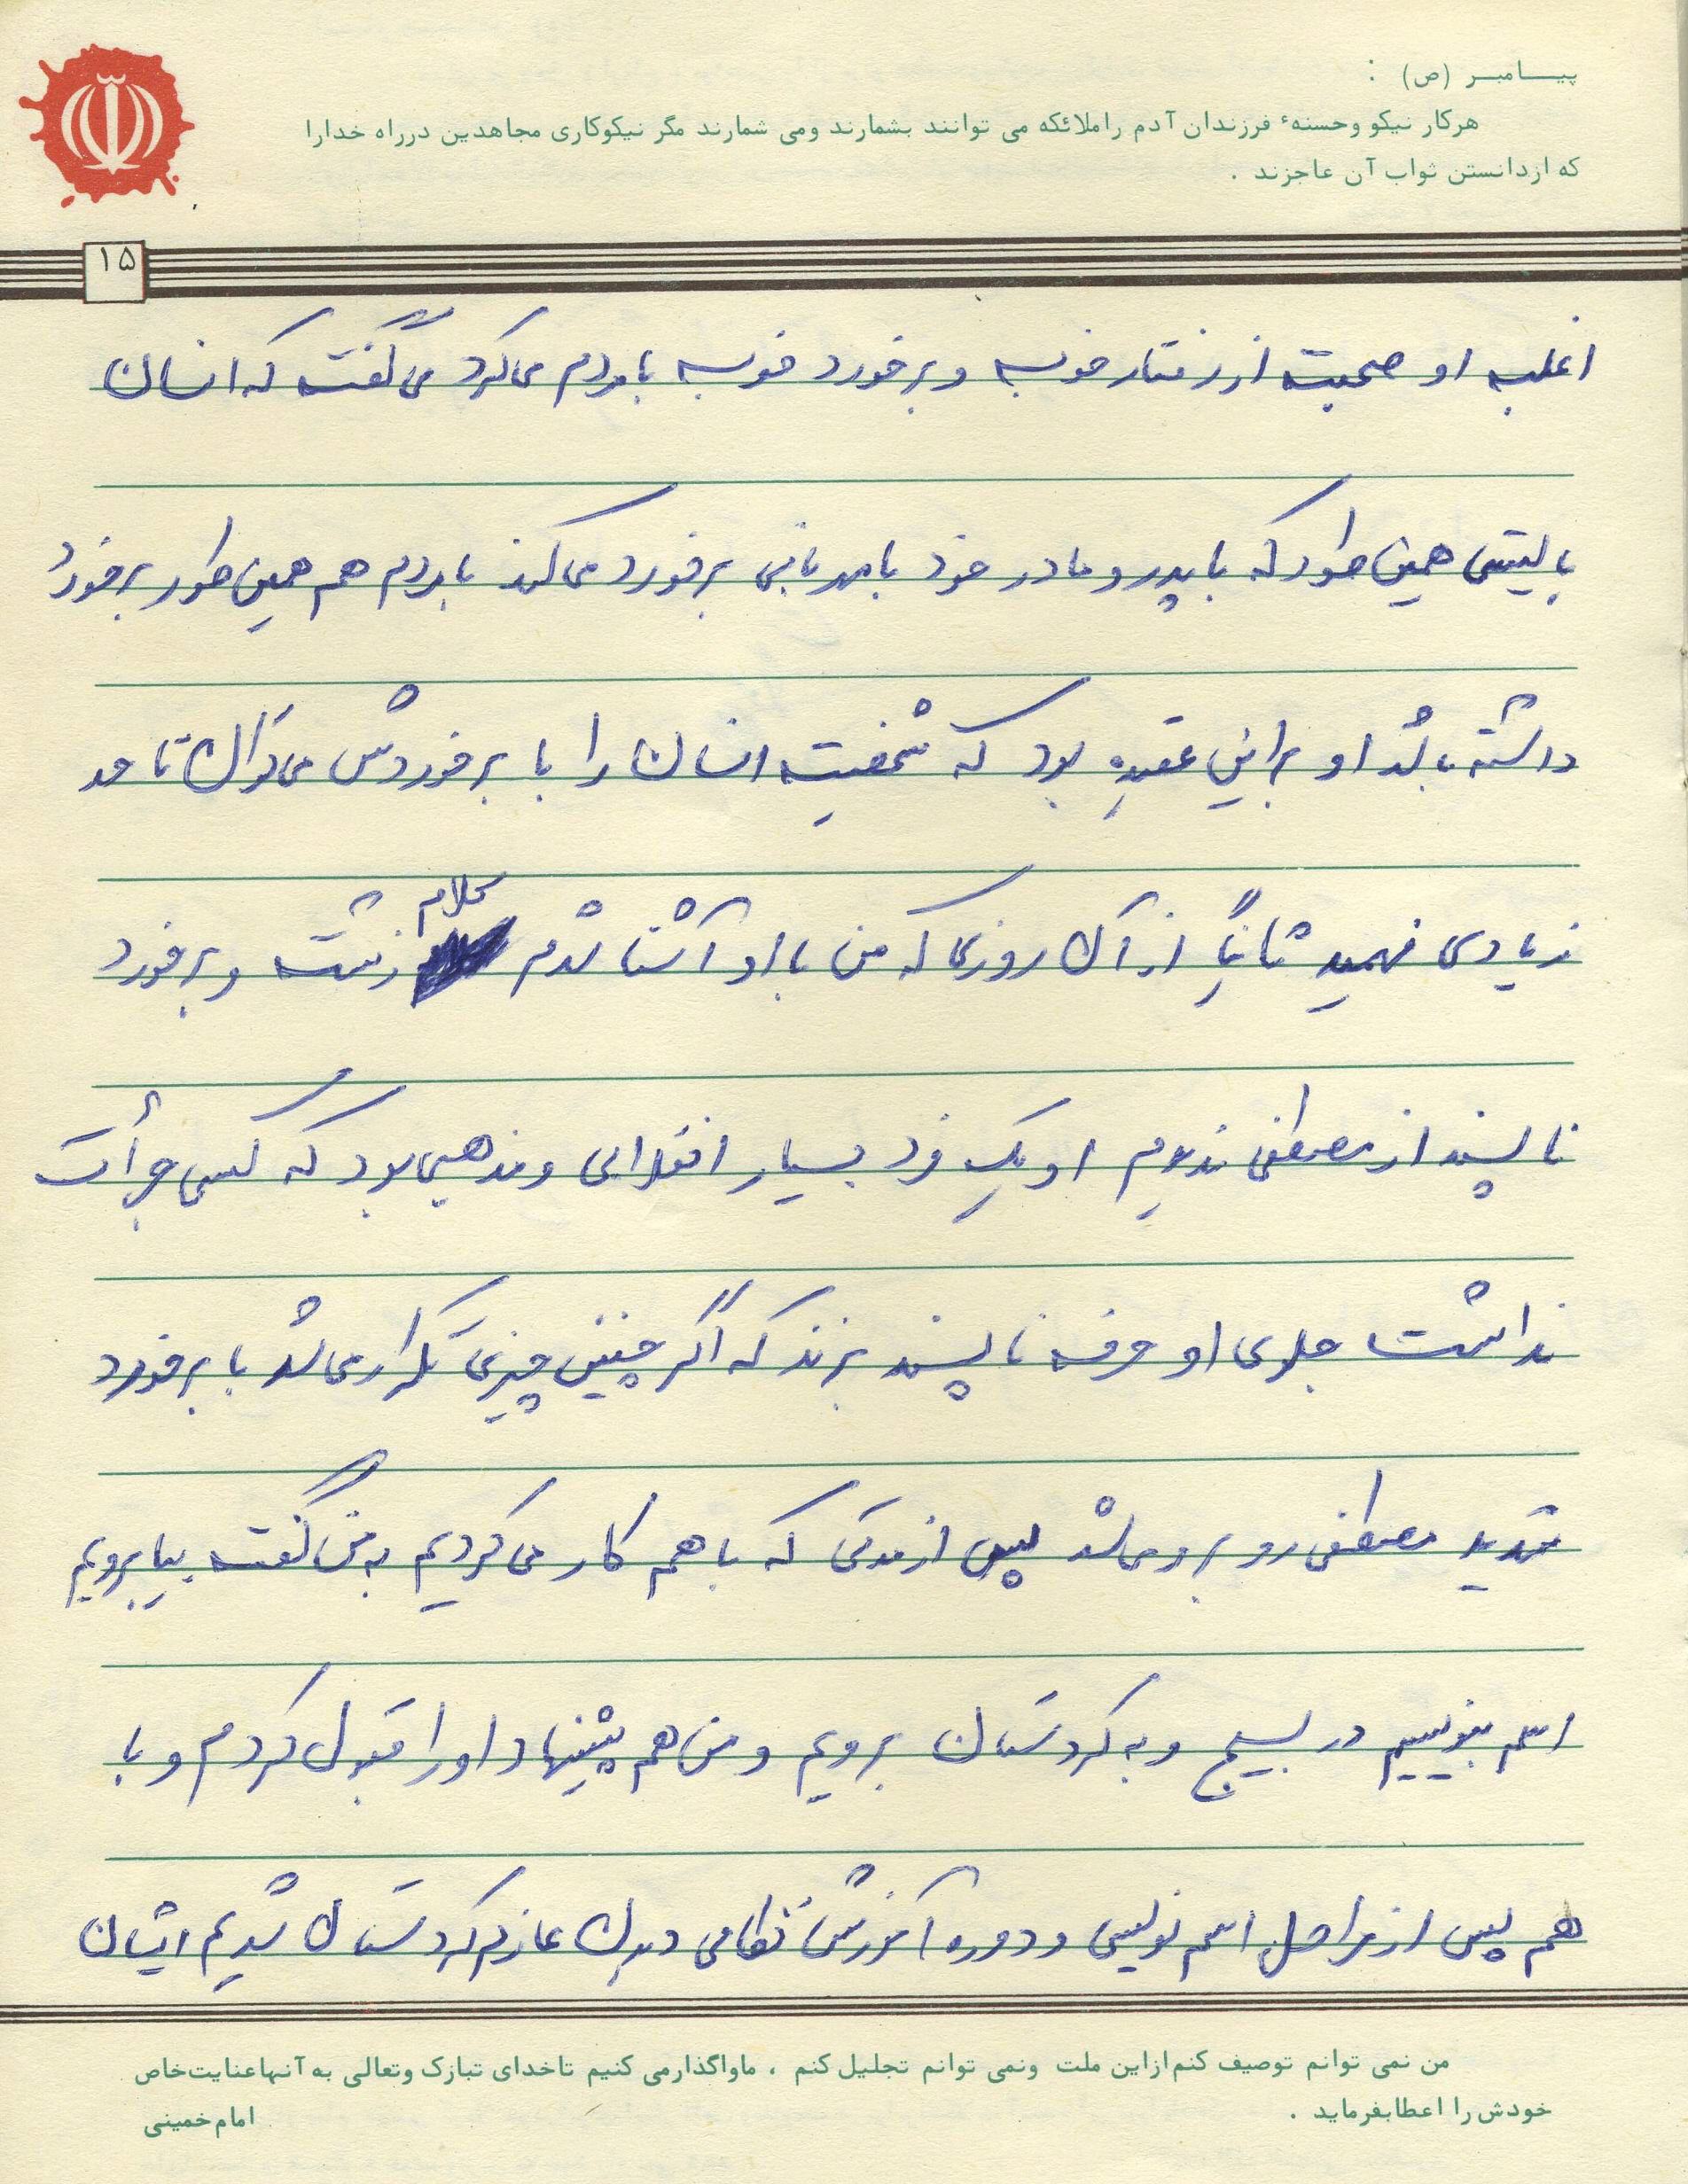 پیامبر (ص) :
هرکار نیکو وحسنهٔ فرزندان آدم راملائکه می توانند بشمارند ومی شمارند مگر نیکوکاری مجاهدین درراه خدارا
که ازدانستن ثواب آن عاجزند .
۱۵
اغلب او صحبت از رفتار خوب و برخورد خوب با مردم می‌کرد می گفت که انسان
بایستی همین طور که با پدر و مادر خود با مهربانی برخورد می‌کند با مردم هم همین طور برخورد
داشته باشد او براین عقیده بود که شخصیت انسان را با برخوردش می‌توان تا حد
زیادی فهمید ثانیاً از آن روزی که من با او آشنا شدم کلام زشت و برخورد
ناپسند از مصطفی ندیدم او یک فرد بسیار انقلابی و مذهبی بود که کسی جرأت
نداشت جلوی او حرف ناپسند بزند که اگر چنین چیزی تکرار می شد با برخورد
شدید مصطفی رو برو می‌شد پس از مدتی که با هم کار می کردیم به من گفت بیا برویم
اسم بنویسیم در بسیج و به کردستان برویم و من هم پیشنهاد او را قبول کردم و با
هم پس از مراحل اسم نویسی و دوره آموزش نظامی دیدن عازم کردستان شدیم ایشان
من نمی توانم توصیف کنم ازاین ملت ونمی توانم تجلیل کنم ، ماواگذارمی کنیم تاخدای تبارک وتعالی به آنهاعنایت خاص
خودش را اعطابفرماید . امام خمینی